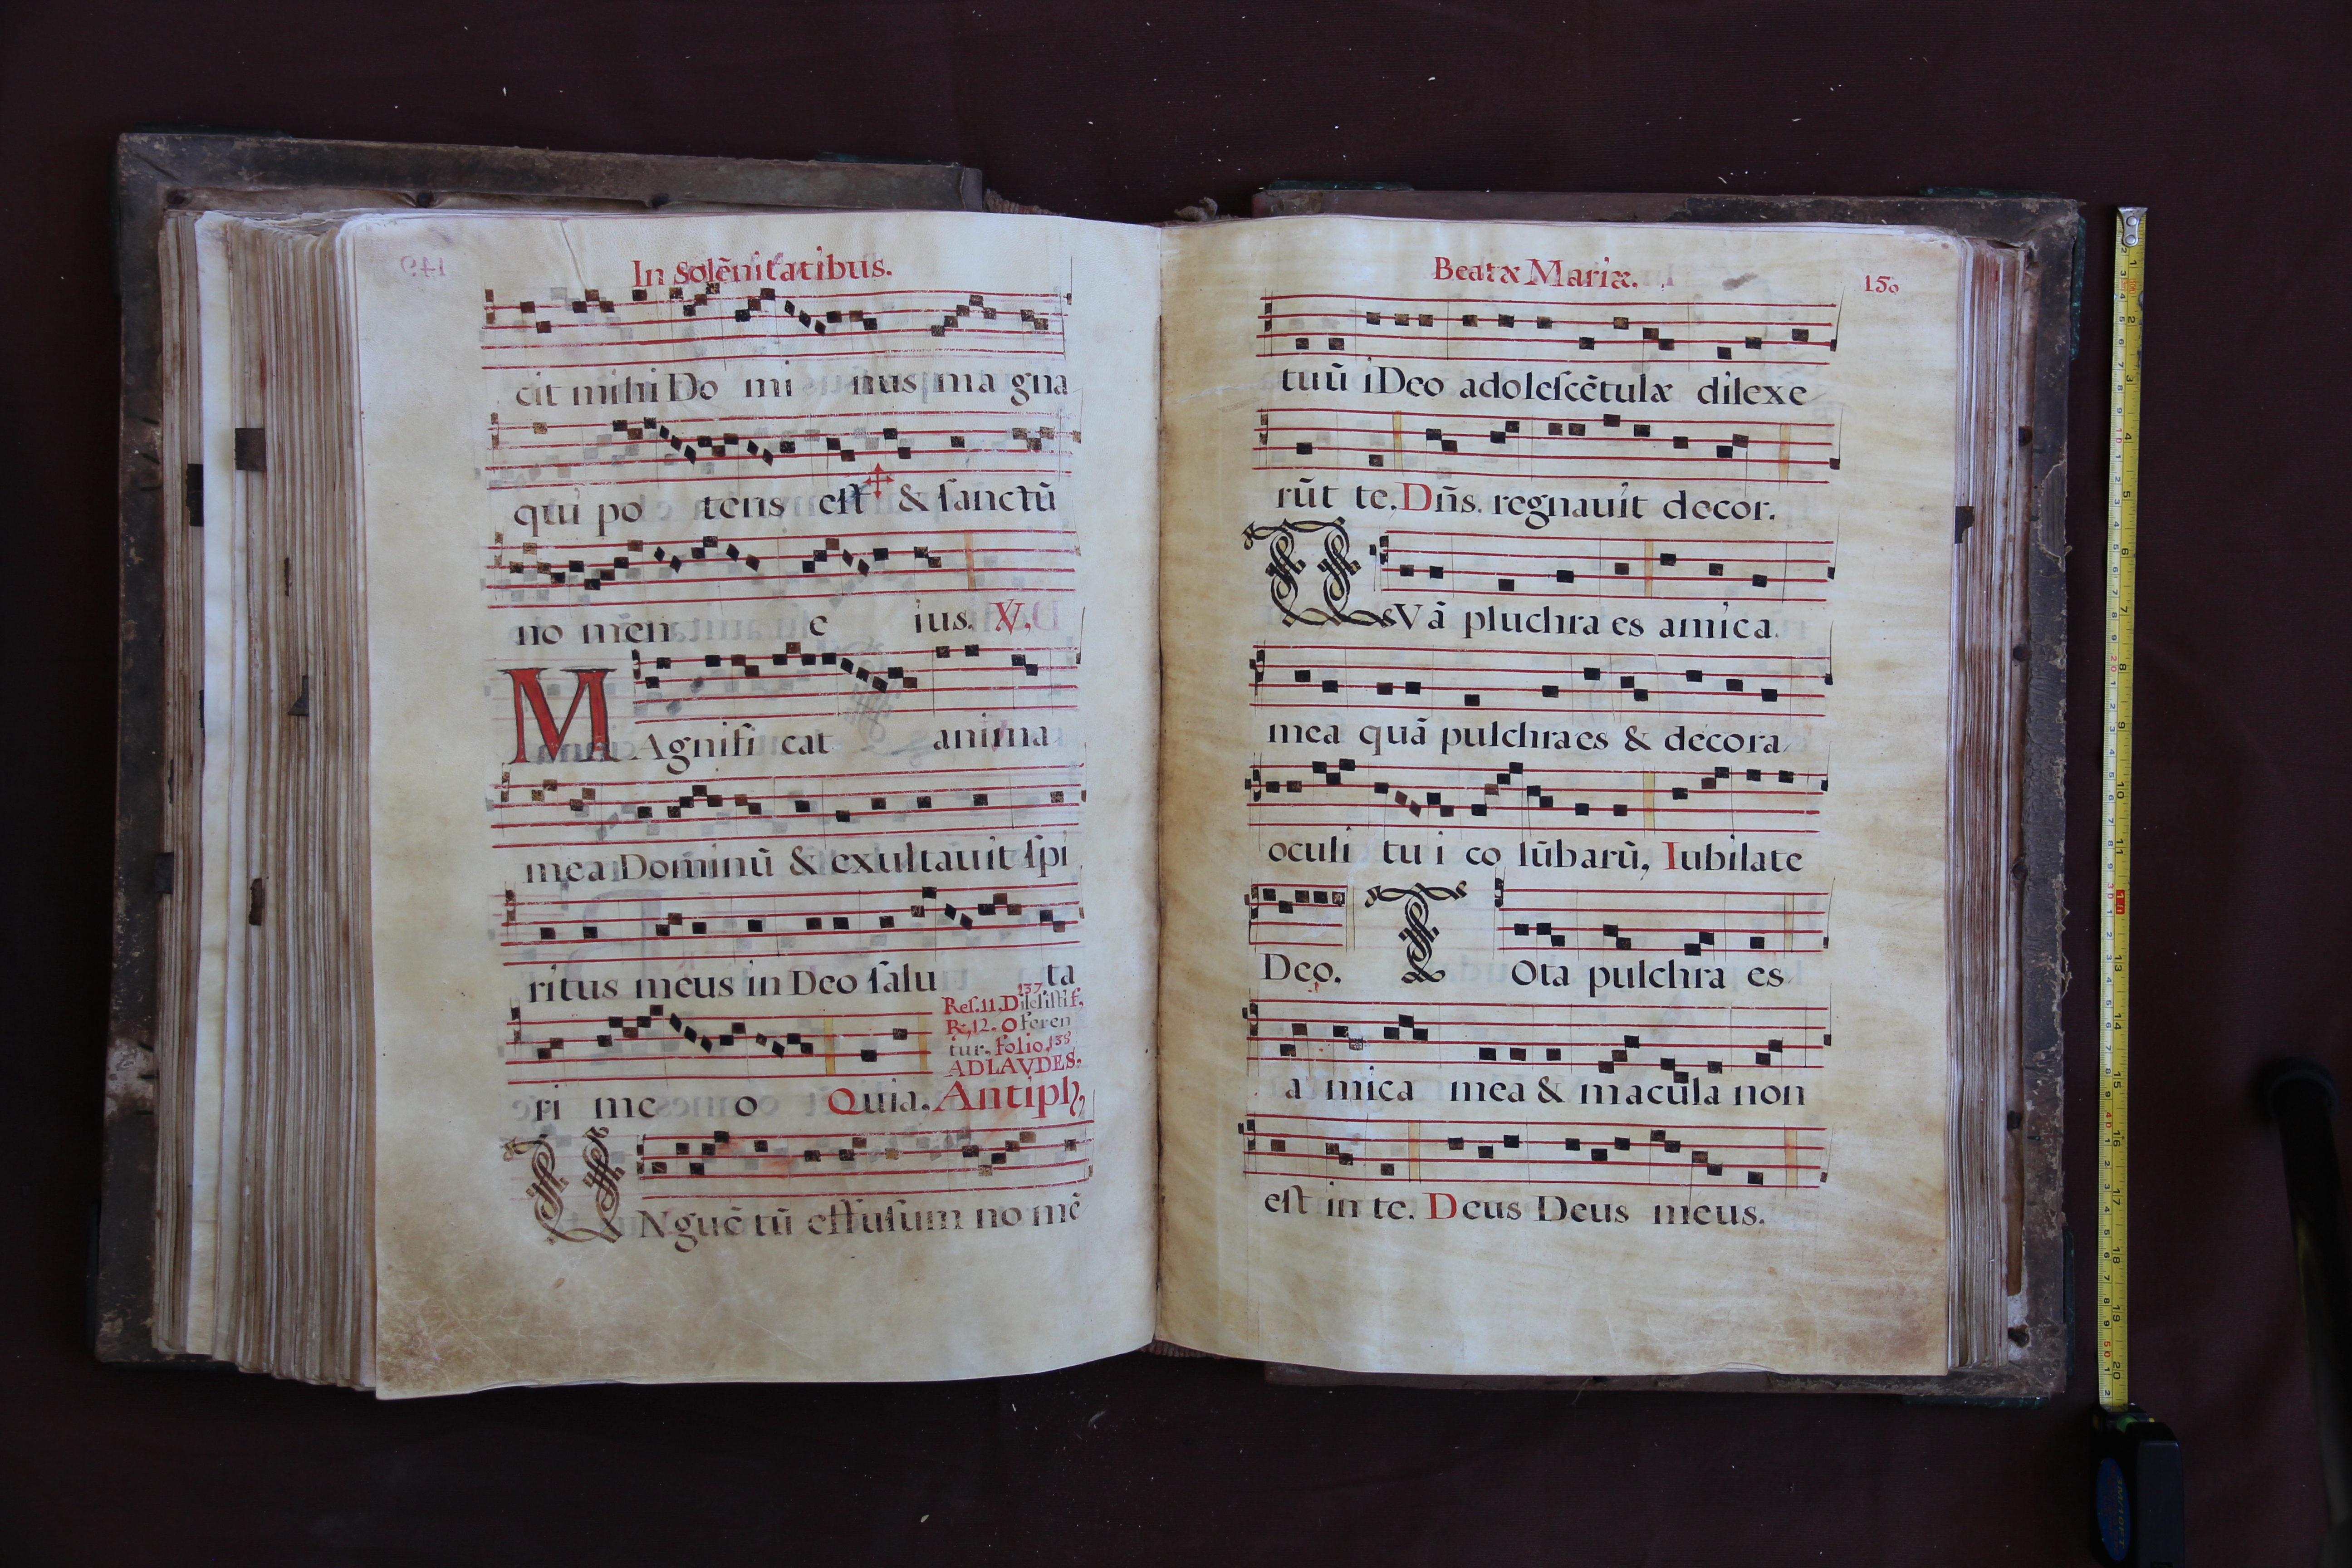 In Solēnitatibus.
cit mihi Do mi nus ma gna
qui po tens eſt & ſanctū
no men e ius. V.
MAgnifi cat anima
mea Dominū & exultauit ſpi
ritus meus in Deo ſalu ta
137
Reſ. 11. Dileſiſtiſ.
R. 12. Oferen
tur. folio. 138
AD LAVDES.
ri me o Quia. Antiph,
VNguē tū effuſum no mē
Beatæ Mariæ.
150
tuū i Deo adoleſcētulæ dilexe
rūt te. Dñs. regnauit decor.
QVā pluchra es amica.
mea quā pulchra es & decora
oculi tu i co lūbarū, Iubilate
Deo. TOta pulchra es
a mica mea & macula non
eſt in te. Deus Deus meus.